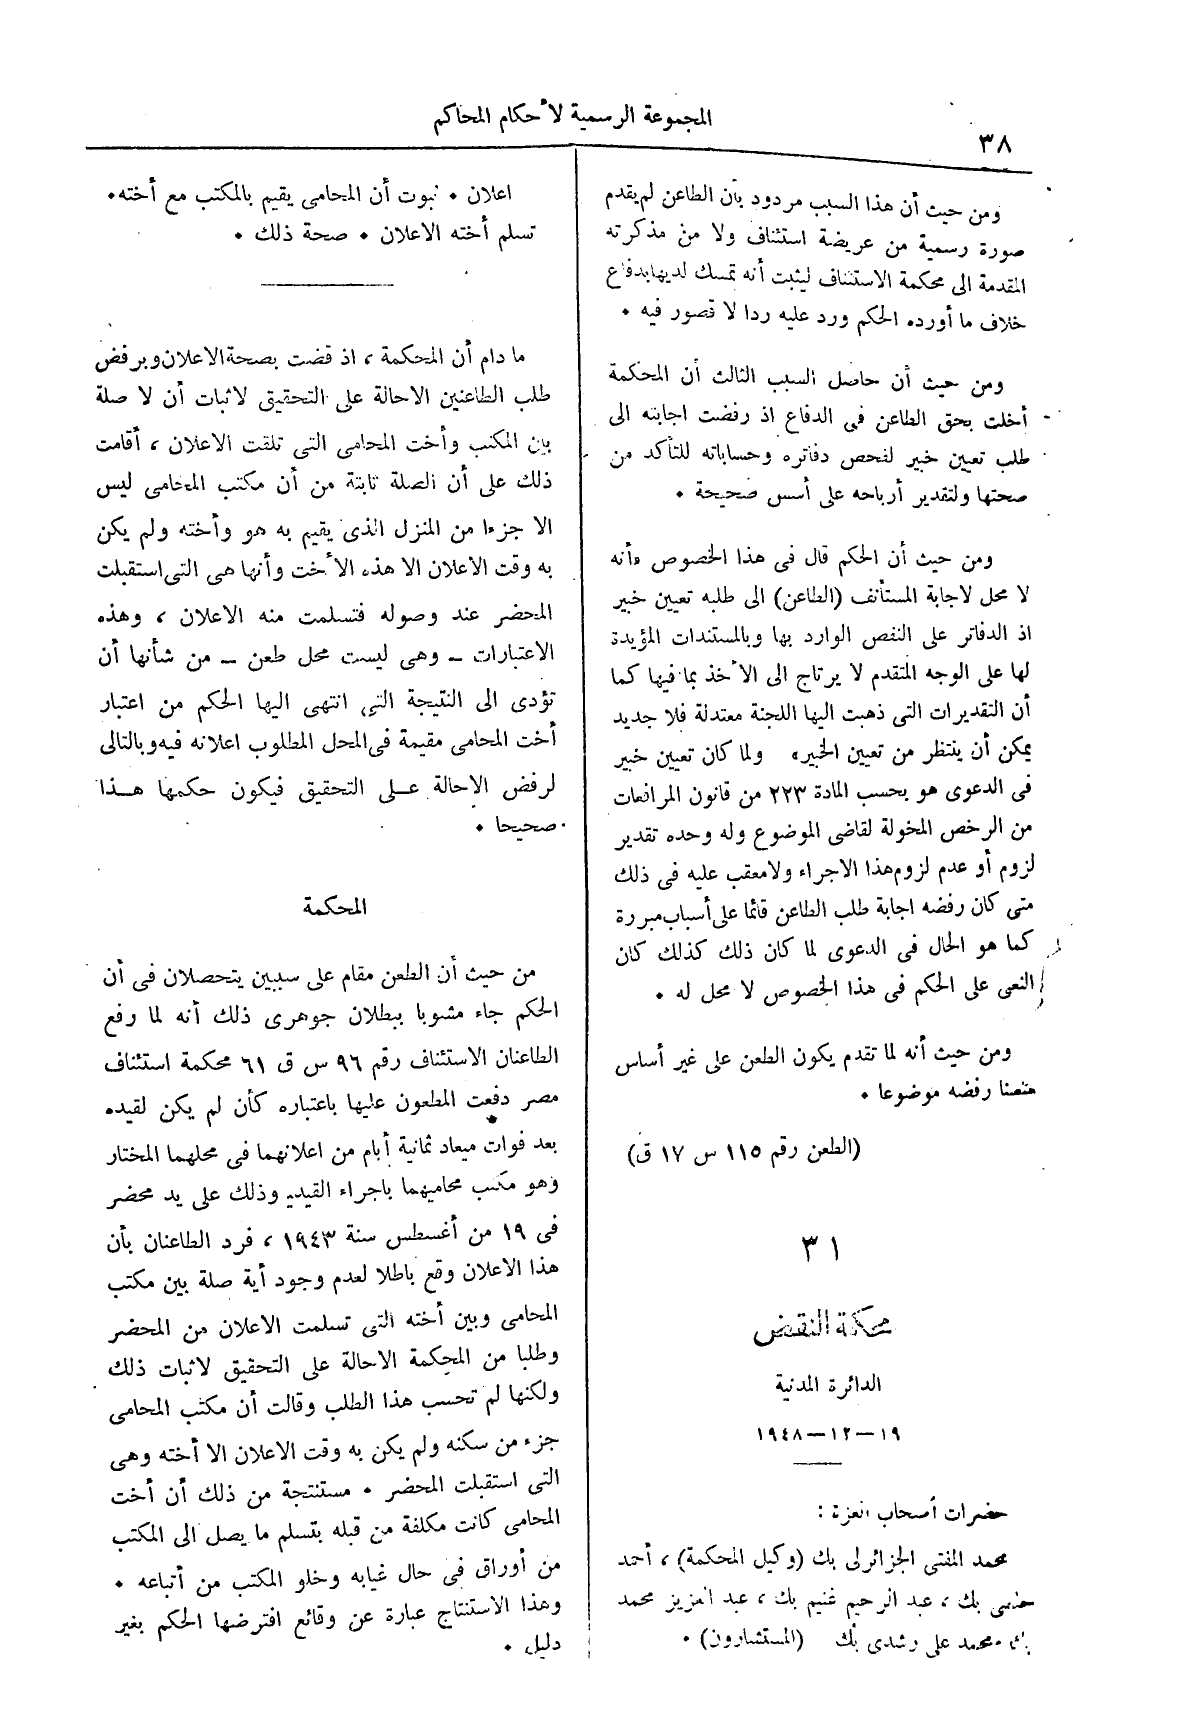 المجموعة الرسمية لأحكام المحاكم
٣٨
ومن حيث أن هذا السبب مردود بأن الطاعن لم يقدم
صورة رسمية من عريضة استئناف ولا من مذكرته
المقدمة الى محكمة الاستئناف ليثبت أنه تمسك لديها بدفاع
خلاف ما أورده الحكم ورد عليه ردا لا قصور فيه •
ومن حيث أن حاصل السبب الثالث أن المحكمة
أخلت بحق الطاعن فى الدفاع اذ رفضت اجابته الى
طلب تعيين خبير لفحص دفاتره وحساباته للتأكد من
صحتها ولتقدير أرباحه على أسس صحيحة •
ومن حيث أن الحكم قال فى هذا الخصوص «أنه
لا محل لاجابة المستأنف (الطاعن) الى طلبه تعيين خبير
اذ الدفاتر على النقص الوارد بها وبالمستندات المؤيدة
لها على الوجه المتقدم لا يرتاح الى الأخذ بما فيها كما
أن التقديرات التى ذهبت اليها اللجنة معتدلة فلا جديد
يمكن أن ينتظر من تعيين الخبير» ولما كان تعيين خبير
فى الدعوى هو بحسب المادة ٢٢٣ من قانون المرافعات
من الرخص المخولة لقاضى الموضوع وله وحده تقدير
لزوم أو عدم لزوم هذا الاجراء ولا معقب عليه فى ذلك
متى كان رفضه اجابة طلب الطاعن قائما على أسباب مبررة
كما هو الحال فى الدعوى لما كان ذلك كذلك كان
النعى على الحكم فى هذا الخصوص لا محل له •
ومن حيث أنه لما تقدم يكون الطعن على غير أساس
متعينا رفضه موضوعا •
(الطعن رقم ١١٥ س ١٧ ق)
٣١
محكمة النقض
الدائرة المدنية
١٩–١٢–١٩٤٨
حضرات أصحاب العزة :
محمد المفتى الجزائرلى بك (وكيل المحكمة) ، أحمد
حلمى بك ، عبد الرحيم غنيم بك ، عبد العزيز محمد
بك ، محمد على رشدى بك (المستشارون) •
اعلان • ثبوت أن المحامى يقيم بالمكتب مع أخته •
تسلم أخته الاعلان • صحة ذلك •
ما دام أن المحكمة ، اذ قضت بصحة الاعلان وبرفض
طلب الطاعنين الاحالة على التحقيق لاثبات أن لا صلة
بين المكتب وأخت المحامى التى تلقت الاعلان ، أقامت
ذلك على أن الصلة ثابتة من أن مكتب المحامى ليس
الا جزءا من المنزل الذى يقيم به هو وأخته ولم يكن
به وقت الاعلان الا هذه الأخت وأنها هى التى استقبلت
المحضر عند وصوله فتسلمت منه الاعلان ، وهذه
الاعتبارات – وهى ليست محل طعن – من شأنها أن
تؤدى الى النتيجة التى انتهى اليها الحكم من اعتبار
أخت المحامى مقيمة فى المحل المطلوب اعلانه فيه وبالتالى
لرفض الاحالة على التحقيق فيكون حكمها هذا
صحيحا •
المحكمة
من حيث أن الطعن مقام على سببين يتحصلان فى أن
الحكم جاء مشوبا ببطلان جوهرى ذلك أنه لما رفع
الطاعنان الاستئناف رقم ٩٦ س ق ٦١ محكمة استئناف
مصر دفعت المطعون عليها باعتباره كأن لم يكن لقيده
بعد فوات ميعاد ثمانية أيام من اعلانهما فى محلهما المختار
وهو مكتب محاميهما باجراء القيد وذلك على يد محضر
فى ١٩ من أغسطس سنة ١٩٤٣ ، فرد الطاعنان بأن
هذا الاعلان وقع باطلا لعدم وجود أية صلة بين مكتب
المحامى وبين أخته التى تسلمت الاعلان من المحضر
وطلبا من المحكمة الاحالة على التحقيق لاثبات ذلك
ولكنها لم تحسب هذا الطلب وقالت أن مكتب المحامى
جزء من سكنه ولم يكن به وقت الاعلان الا أخته وهى
التى استقبلت المحضر • مستنتجة من ذلك أن أخت
المحامى كانت مكلفة من قبله بتسلم ما يصل الى المكتب
من أوراق فى حال غيابه وخلو المكتب من أتباعه •
وهذا الاستنتاج عبارة عن وقائع افترضها الحكم بغير
دليل •